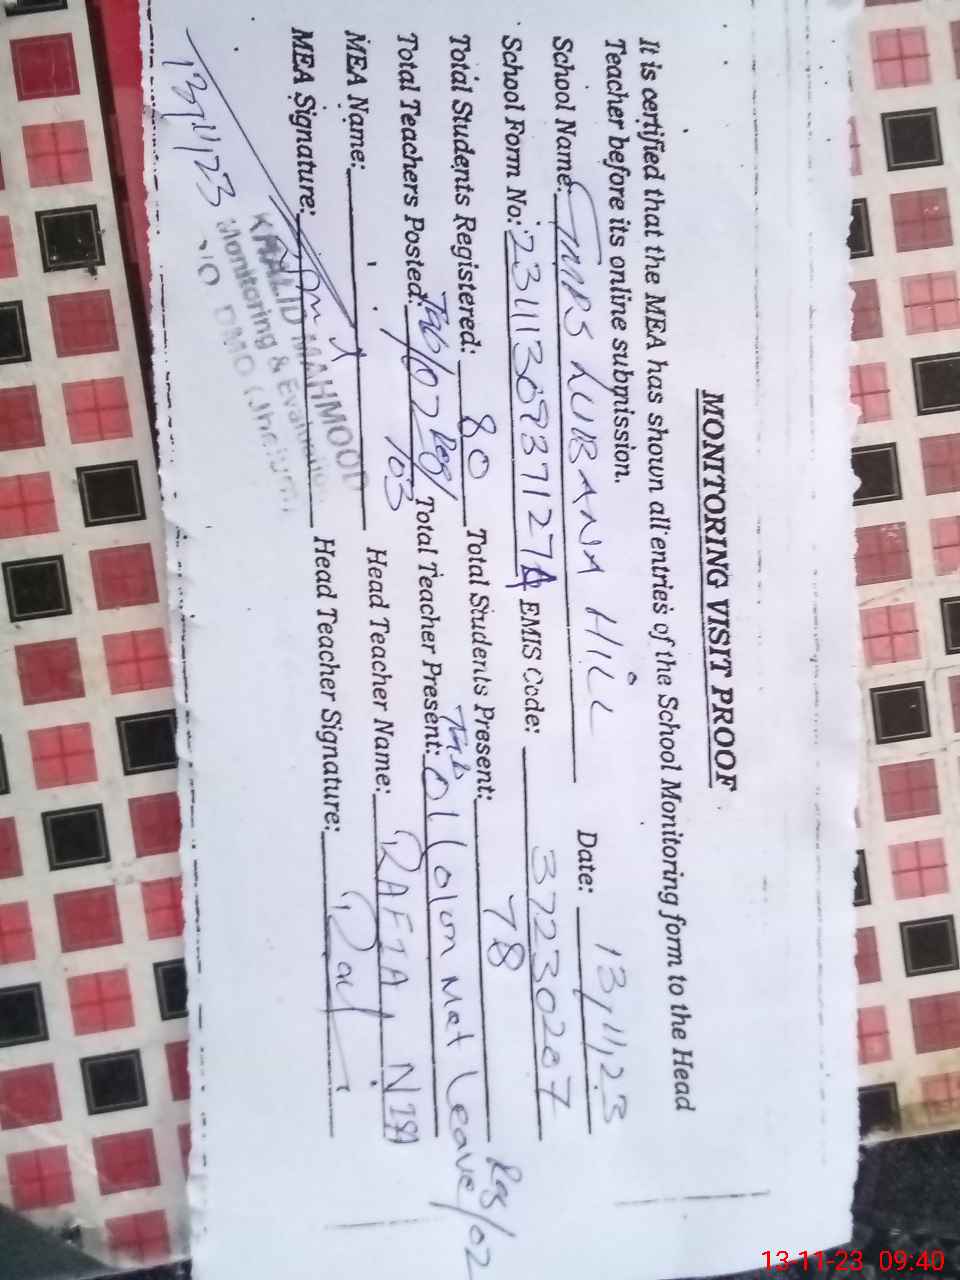 MONITORING VISIT PROOF
It is certified that the MEA has shown all entries of the School Monitoring form to the Head
Teacher before its online submission.
School Name: GMPS LUBANA HILL Date: 13/11/23
School Form No: EMIS Code: 37230207
Total Students Registered: 80 Total Students Present: 78
Total Teachers Posted: Tab/02 Reg/03 Total Teacher Present: Tab 01 (01 on Mat Leave Reg/02
MEA Name: Head Teacher Name: RAFIA NISA
MEA Signature: Head Teacher Signature:
13/11/23
KHALID MAHMOOD
Monitoring & Evaluation
O/O DMO (Jhelum)
13-11-23 09:40